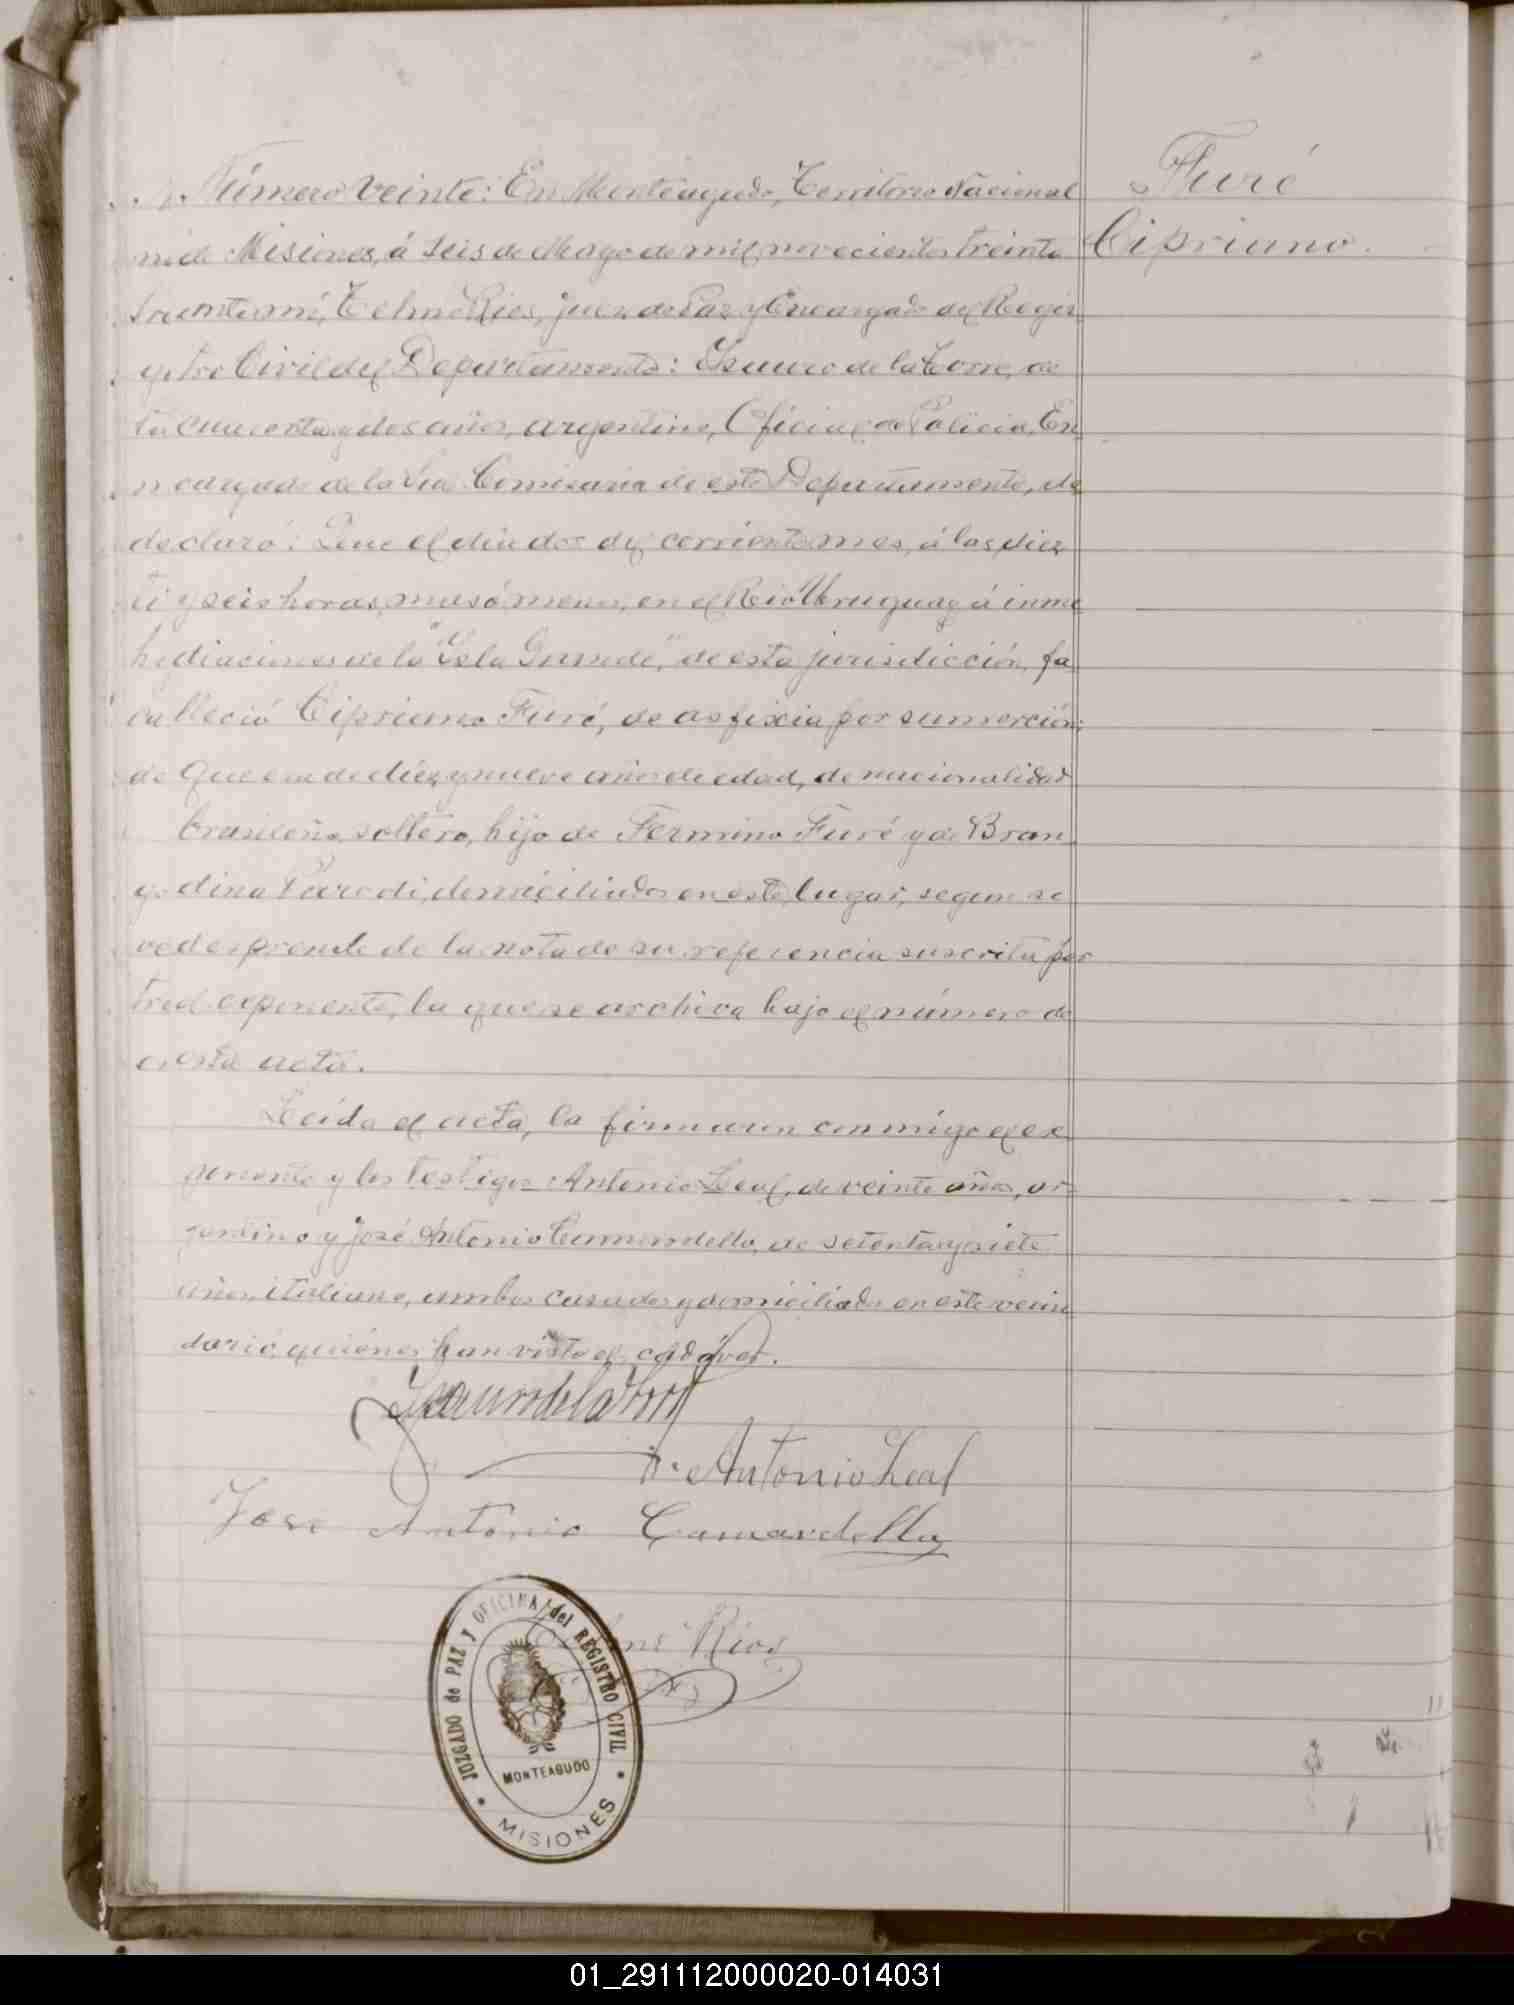 Furé
Cipriano.
Número veinte: En Monteagudo, Territorio Nacional
de Misiones, á seis de Mayo de mil novecientos treinta
ante mí, Telmo Rios, juez de Paz y Encargado del Regis
tro Civil del Departamento: Isauro de la Torre, de
cuarenta y dos años, argentino, Oficial de Policia, En
cargado de la Comisaria de este Departamento,
declaró: Que el día dos del corriente mes, á las diez
y seis horas, mas ó menos, en el Reió Uruguay á inme
diaciones de la "Isla Grande," de esta jurisdicción, fa
lleció Cipriano Furé, de asfixia por sumerción;
Que era de diez y nueve años de edad, de nacionalidad
brasileña, soltero, hijo de Fermino Furé y de Bran
dina Parodi, domiciliados en este lugar, segun se
desprende de la nota de su referencia suscrita por
el exponente, la que se archiva bajo el número de
esta acta.
Leida el acta, la firmaron conmigo el ex
ponente y los testigos Antonio Leal, de veinte años, ar
jentino y José Antonio Camardella, de setenta y siete
años, italiano, ambos casados y domiciliados en este vecin
dario, quiénes han visto el cadáver.
Isauro de la Torre
Antonio Leal
Jose Antonio Camardella
Telmo Rios
JUZGADO de PAZ Y OFICINA del REGISTRO CIVIL
MONTEAGUDO
MISIONES
01_291112000020-014031